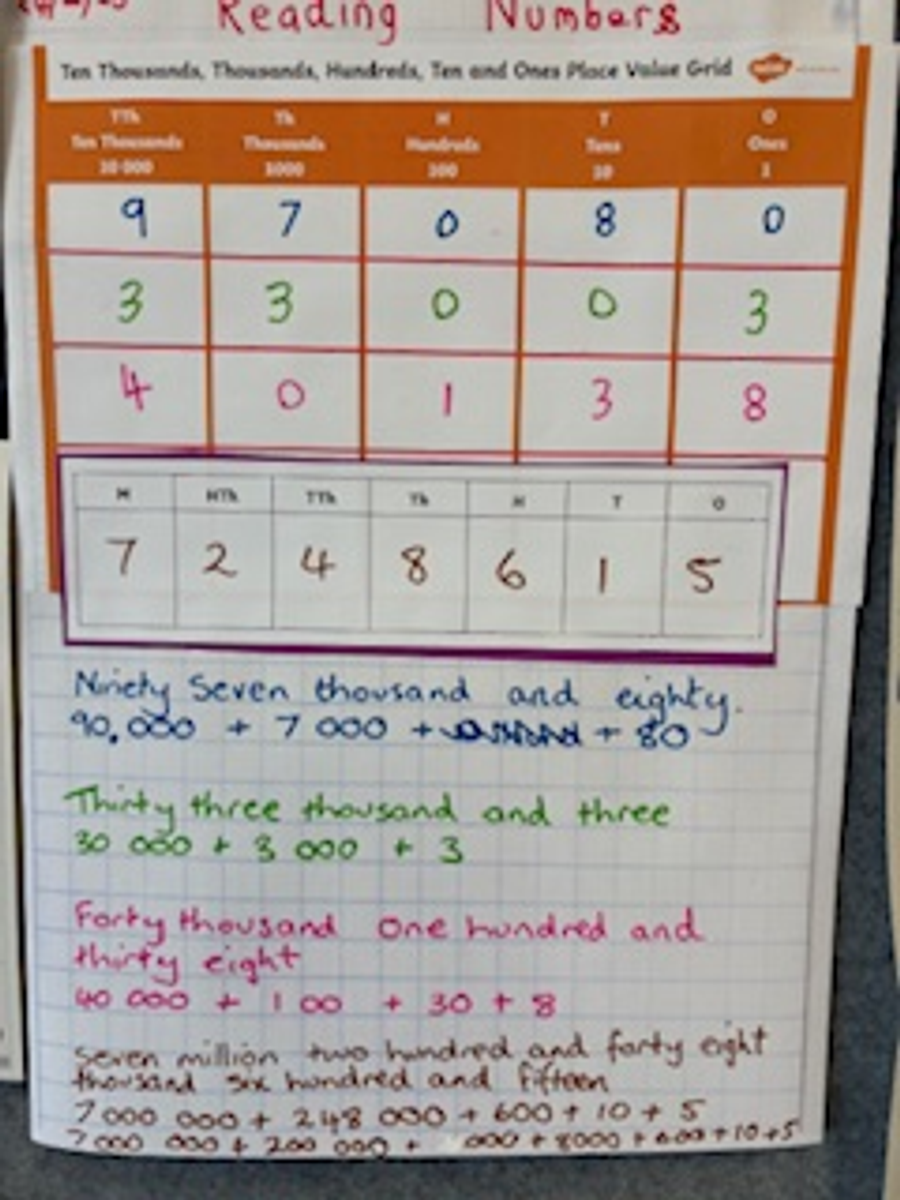 Reading Numbers
Ten Thousands, Thousands, Hundreds, Ten and Ones Place Value Grid
TTh Th H T O
Ten Thousands Thousands Hundreds Tens Ones
10 000 1000 100 10 1
9 7 0 8 0
3 3 0 0 3
4 0 1 3 8
M HTh TTh Th H T O
7 2 4 8 6 1 5
Ninety Seven thousand and eighty.
90,000 + 7 000 + + 80
Thirty three thousand and three
30 000 + 3 000 + 3
Forty thousand One hundred and
thirty eight
40 000 + 100 + 30 + 8
Seven million two hundred and forty eight
thousand six hundred and fifteen
7 000 000 + 248 000 + 600 + 10 + 5
7 000 000 + 200 000 + 000 + 8000 + 600 + 10 + 5